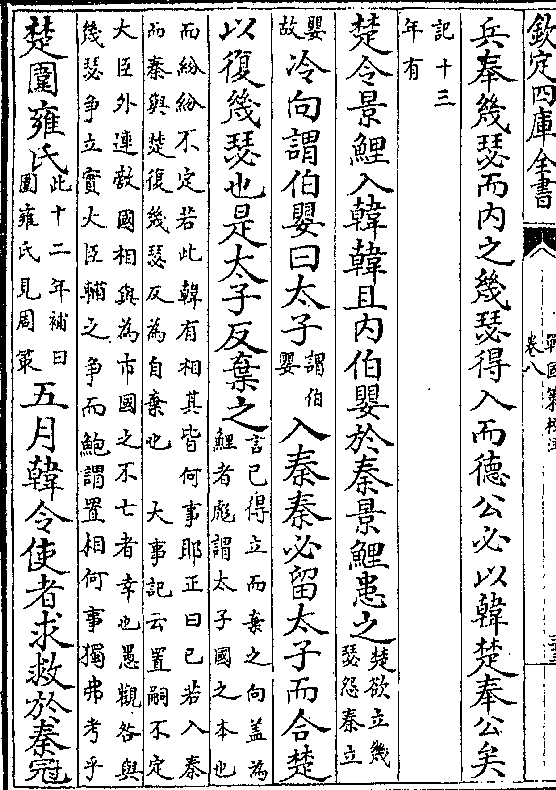 欽定四庫全書
戰國策校注
卷八
兵奉幾瑟而內之幾瑟得入而德公必以韓楚奉公矣
記十三
年有
楚令景鯉入韓韓且內伯嬰於秦景鯉患之楚欲立幾
瑟怨秦立
嬰
故冷向謂伯嬰曰太子謂伯
嬰入秦秦必留太子而合楚
以復幾瑟也是太子反棄之言已得立而棄之向盖為
鯉者彪謂太子國之本也
而紛紛不定若此韓有相其皆何事耶正曰已若入秦
而秦與楚復幾瑟反為自棄也 大事記云置嗣不定
大臣外連敵國相與為市國之不亡者幸也愚觀咎與
幾瑟爭立實大臣輔之爭而鮑謂置相何事獨弗考乎
楚圍雍氏此十二年補曰
圍雍氏見周策五月韓令使者求救於秦冠